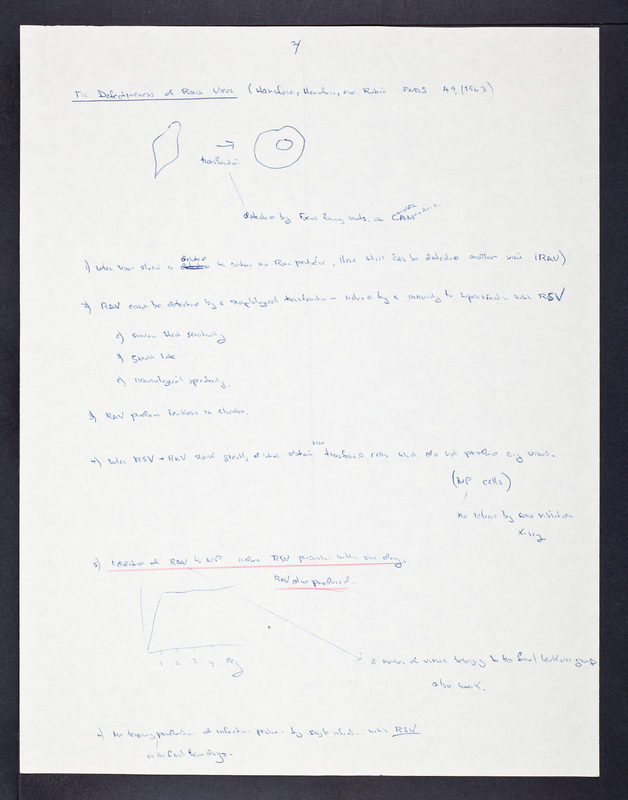 The Defectiveness of Rous Virus (Hanafusa, Hanafusa, and Rubin PNAS 49 (1963)
transformation
detected by Focus forming units, on CAM
1) When virus stock is diluted to no Rous there still can be detected another virus (RAV)
2) RAV cannot be detected by morphological transformation induced by immunity to superinfection with RSV
a) similar heat sensitivity
b) growth rate
c) immunological specificity.
3) RAV produces leukosis in chicken
4) When RSV + RAV stock greatly diluted obtain transformed cells that do not produce any virus.
(NP cells)
no release by
X-ray
5) Addition of RAV to NP induces RSV production within one day.
RAV also produced.
1 2 3 4 Day
a number of viruses belonging to the fowl leukosis group
also work.
No production of infectious by single infection with RSV
in the first few days.